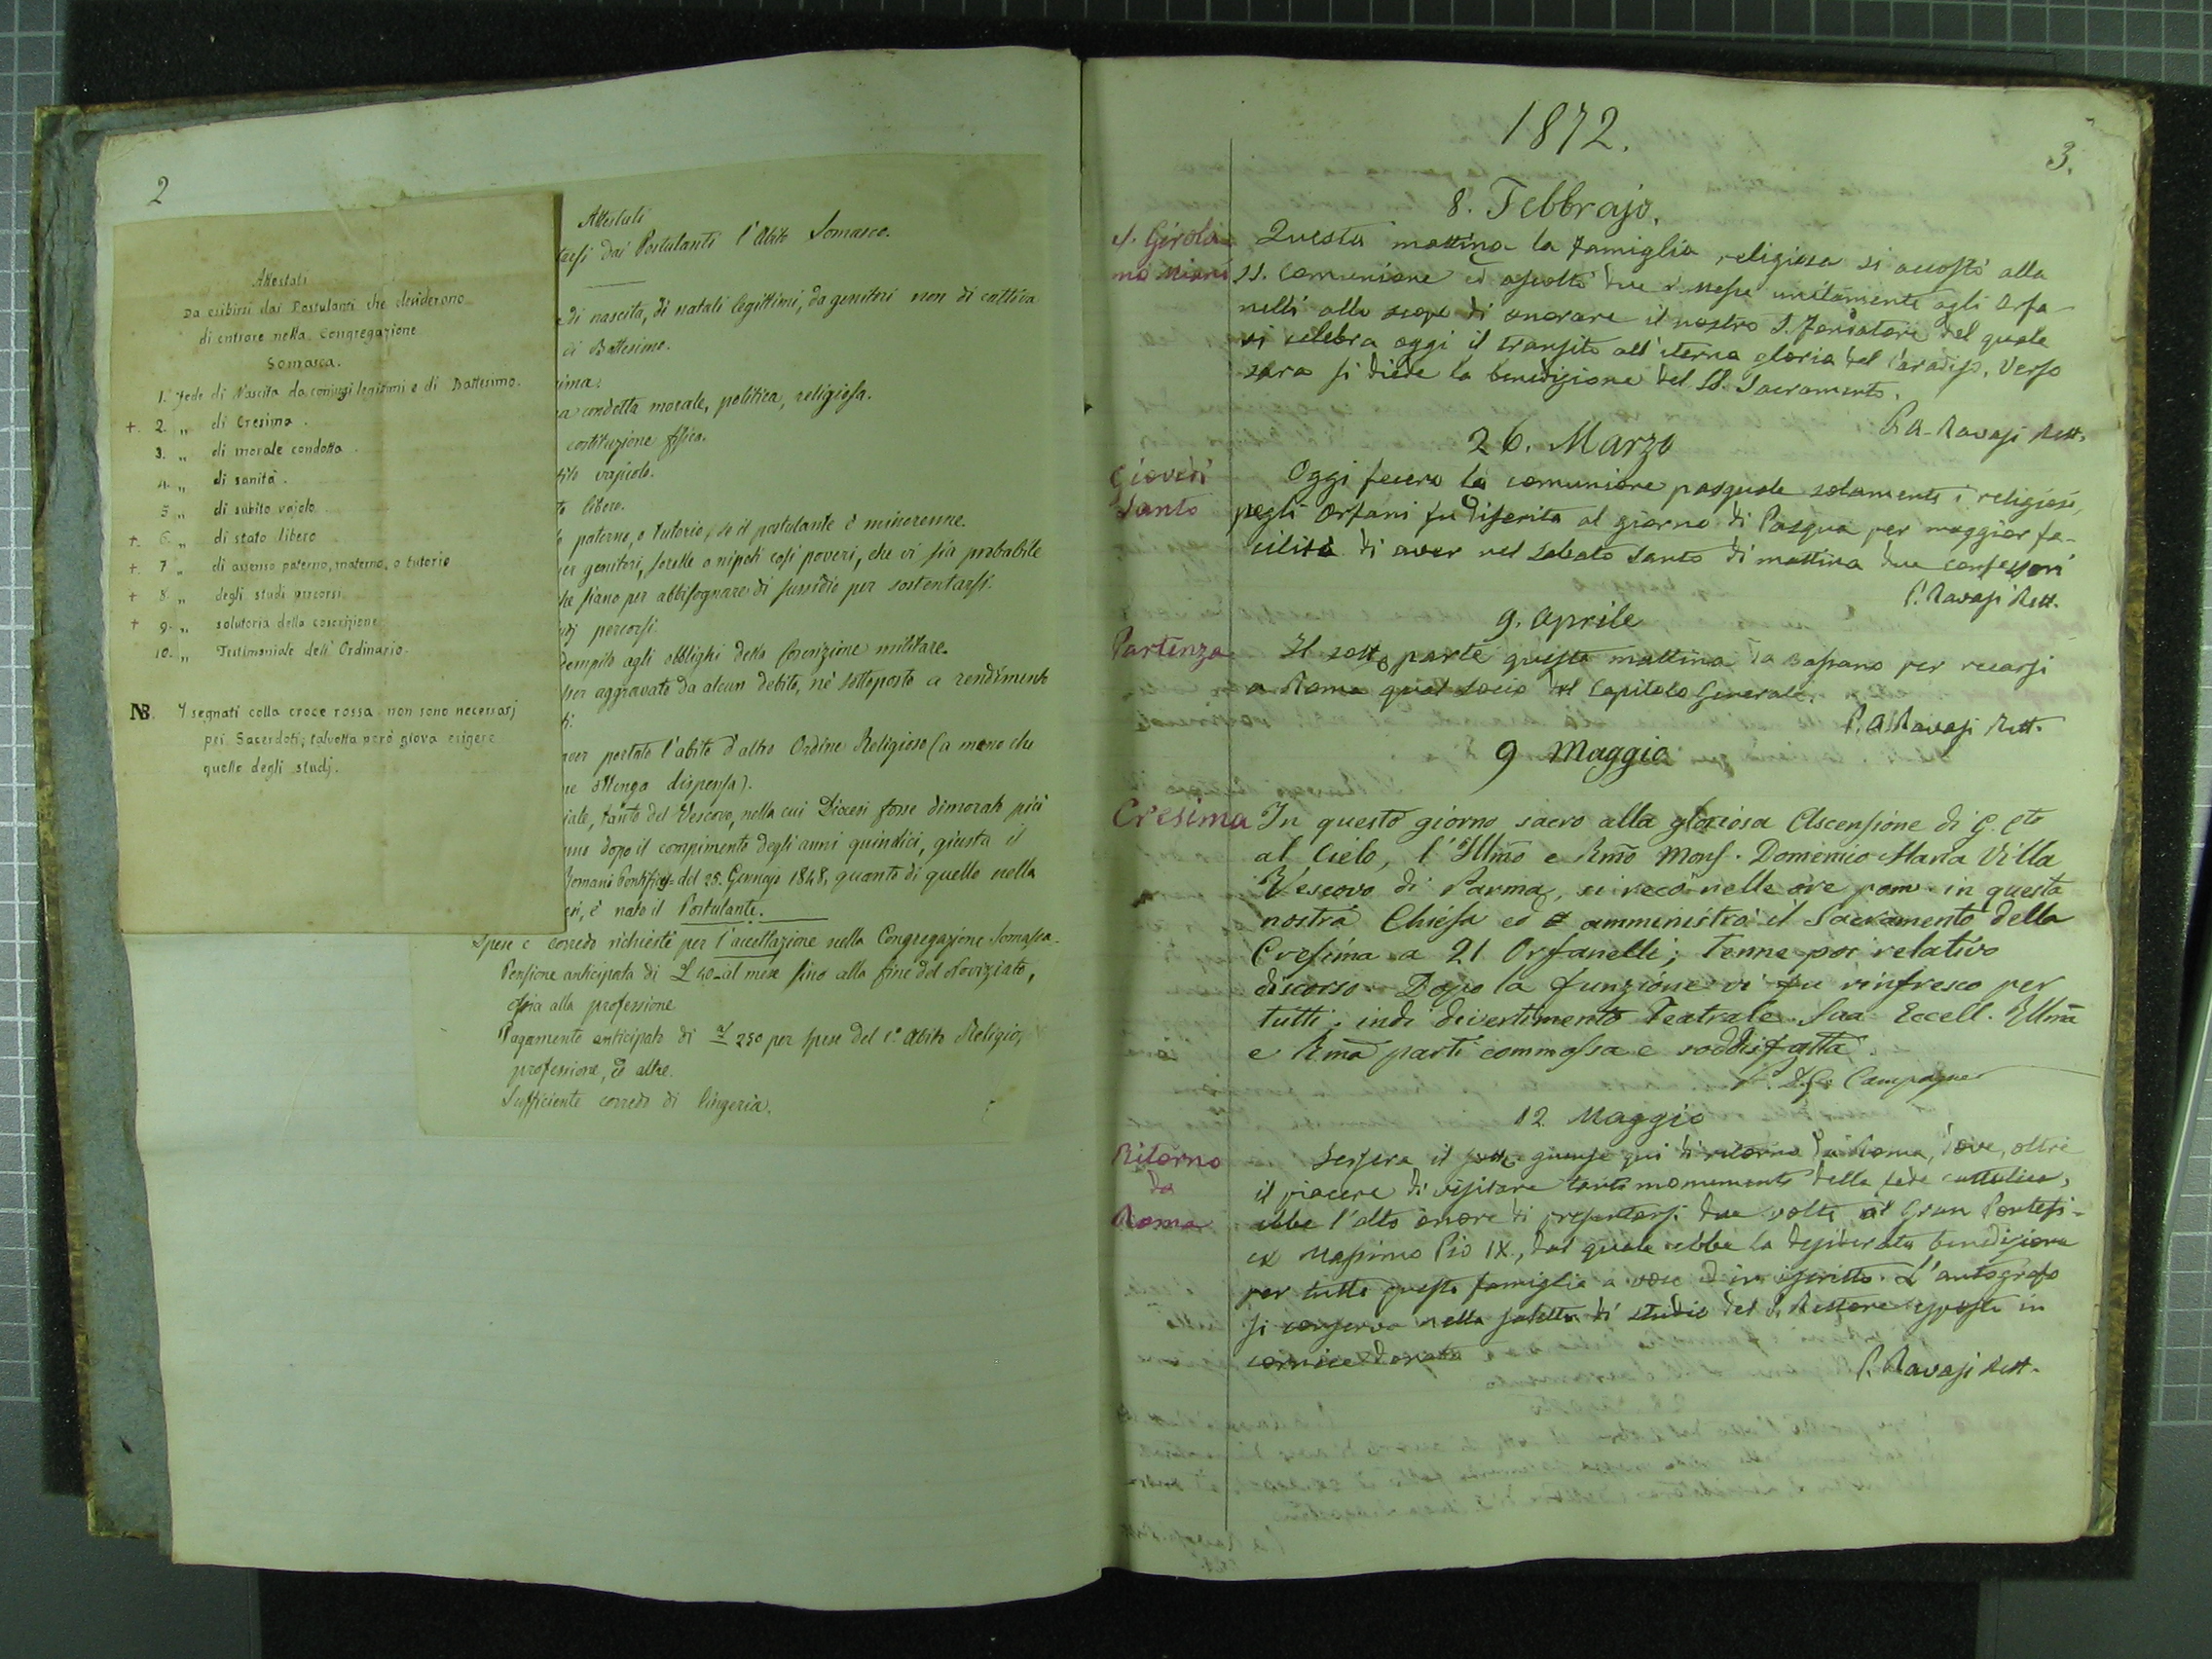 2
Attestati
Da esibirsi dai Postulanti che desiderano
di entrare nella Congregazione
Somasca.
1. Fede di Nascita da conjugi legittimi e di Battesimo.
+. 2. „ di Cresima.
3. „ di morale condotta.
4. „ di sanità.
5 „ di subito vajolo.
+. 6. „ di stato libero
+. 7 „ di assenso paterno, materno, o tutorio
+ 8 „ degli studi percorsi
+ 9. „ solutoria della coscrizione
10. „ Testimoniale dell' Ordinario.
NB. I segnati colla croce rossa non sono necessarj
pei Sacerdoti; talvolta però giova esigere
quello degli studj.
Attestati
tarsi dai Postulanti l'Abito Somasco.
di nascita, di natali legittimi, da genitori non di cattiva
di Battesimo.
ima.
a condotta morale, politica, religiosa.
costituzione fisica.
vajuolo.
libero.
paterno, o tutorio, se il postulante è minorenne.
er genitori, sorelle o nipoti così poveri, che vi sia probabile
che siano per abbisognare di sussidio per sostentarsi.
percorsi.
dempito agli obblighi della Coscrizione militare.
sser aggravato da alcun debito, nè sottoposto a rendimento
ti.
aver portato l'abito d'altro Ordine Religioso (a meno che
ne ottenga dispensa).
iale, tanto del Vescovo, nella cui Diocesi fosse dimorato più
nno dopo il compimento degli anni quindici, giusta il
Romani Pontifices del 25. Gennajo 1848, quanto di quello nella
è nato il Postulante.
Spese e corredo richiesti per l'accettazione nella Congregazione Somasca.
Pensione anticipata di £ 40 al mese fino alla fine del Noviziato,
ossia alla professione
Pagamento anticipato di 250 per spese del 1.° Abito Religio,
professione, ed altre.
Sufficiente corredo di lingeria.
1872.
3.
8. Febbrajo.
S. Girola-
mo Miani
Questa mattina la famiglia religiosa si accostò alla
SS. Comunione ed ascoltò due s. messe unitamente agli Orfa-
nelli allo scopo di onorare il nostro S. Fondatore del quale
si celebra oggi il transito all'eterna gloria del Paradiso. Verso
sera si diede la benedizione del SS. Sacramento.
P. A. Ravasi Rett.
26. Marzo
Giovedì
Santo
Oggi fecero la comunione pasquale solamente i religiosi,
pegli Orfani fu diferita al giorno di Pasqua per maggior fa-
cilità di aver nel Sabato Santo di mattina due confessori
P. Ravasi Rett.
9. Aprile
Partenza
Il sott.o parte questa mattina da Bassano per recarsi
a Roma qual socio del Capitolo Generale.
P. A. Ravasi Rett.
9 Maggio
Cresima
In questo giorno sacro alla gloriosa Ascensione di G. Cto
al Cielo, l'Illmo e Rmo Mons. Domenico Maria Villa
Vescovo di Parma, si recò nelle ore pom. in questa
nostra Chiesa ed amministrò il Sacramento della
Cresima a 21 Orfanelli; tenne poi relativo
discorso. Dopo la funzione vi fu rinfresco per
tutti, indi divertimento Teatrale. Sua Eccell. Illma
e Rma partì commossa e soddisfatta.
Campagner
12 Maggio
Ritorno
da
Roma
Jersera il sott.o giunse qui di ritorno da Roma, dove, oltre
il piacere di visitare tanti monumenti della fede cattolica,
ebbe l'alto onore di presentarsi due volte al Gran Pontefi-
ce Massimo Pio IX, dal quale ebbe la desiderata benedizione
per tutta questa famiglia a voce ed in iscritto. L'autografo
si conserva nella saletta di studio del P. Rettore esposto in
cornice dorata
P. Ravasi Rett.